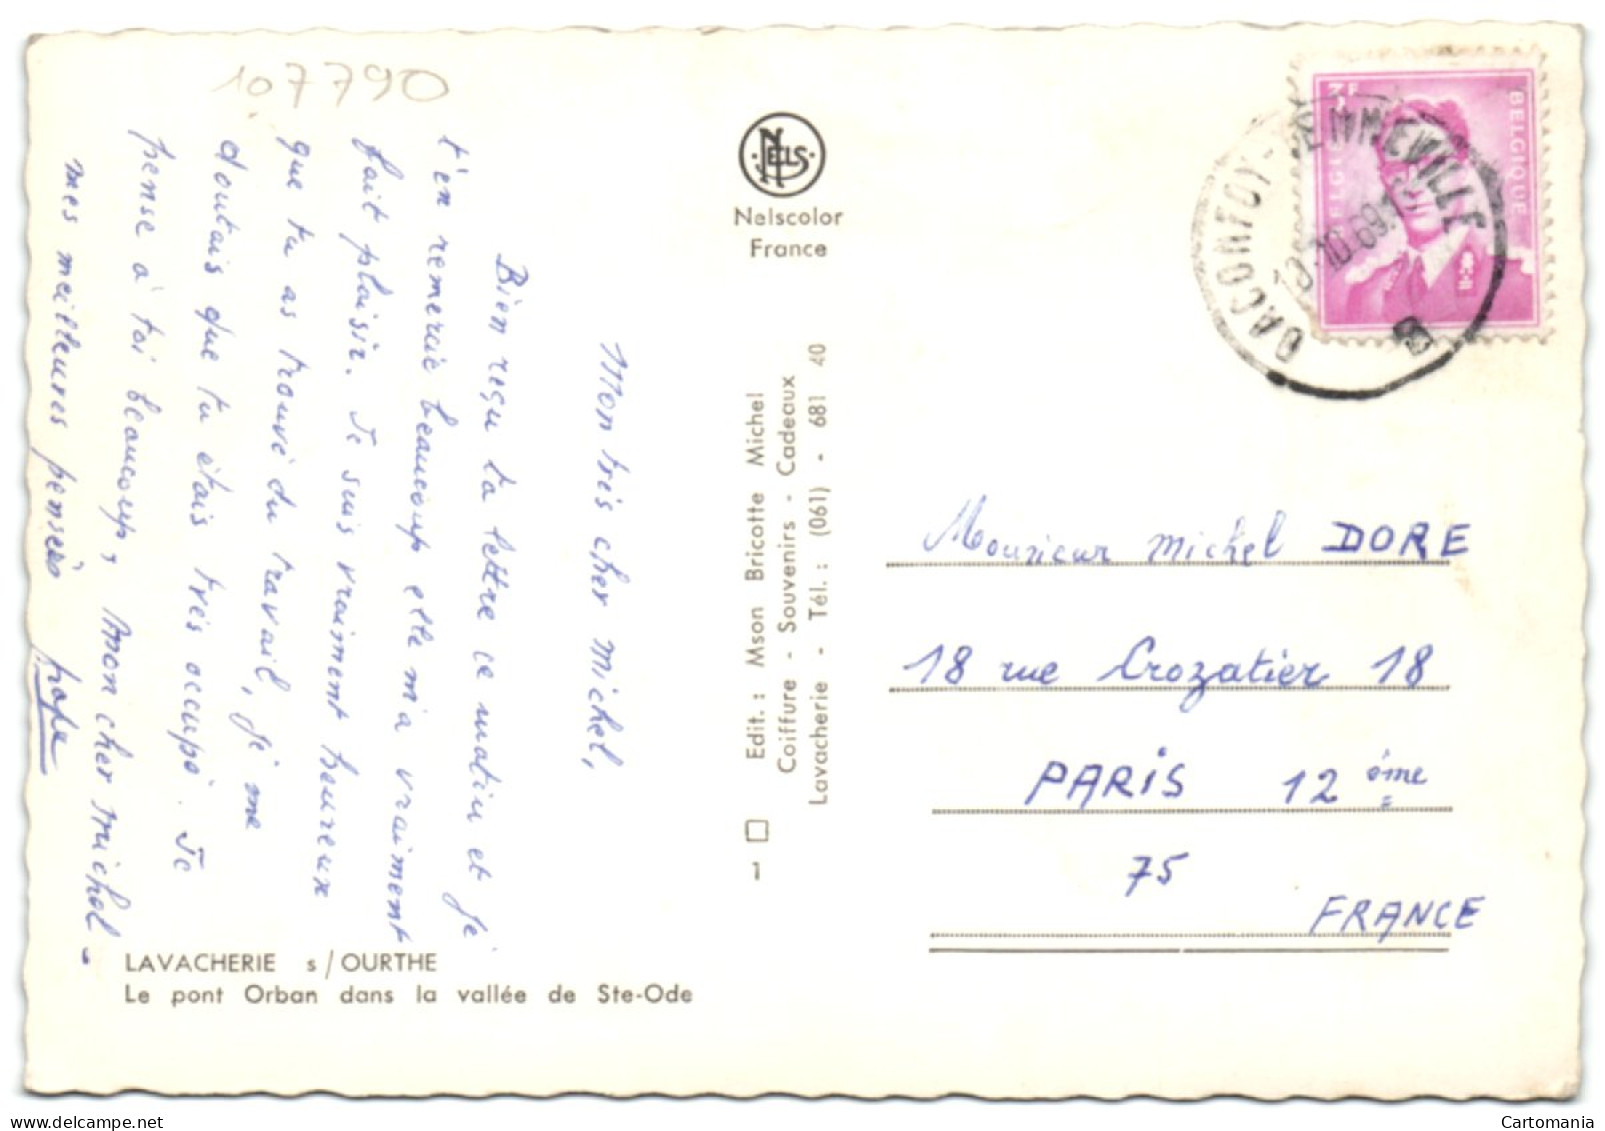 107790
Mon très cher Michel,
Bien reçu ta lettre ce matin et je
t'en remercie beaucoup elle m'a vraiment
fait plaisir. Je suis vraiment heureux
que tu as trouvé du travail, je me
doutais que tu étais très occupé. Je
pense à toi beaucoup, mon cher Michel -
mes meilleures pensées papa
LAVACHERIE s/OURTHE
Le pont Orban dans la vallée de Ste-Ode
NELS
Nelscolor
France
Edit. : Mson Bricotte Michel
Coiffure - Souvenirs - Cadeaux
Lavacherie - Tél. : (061) - 681 40
1
3F
BELGIQUE
BELGIE
DACONTOY-TENNEVILLE
10.69
Monsieur Michel DORE
18 rue Crozatier 18
PARIS 12 ème
75
FRANCE
www.delcampe.net
Cartomania